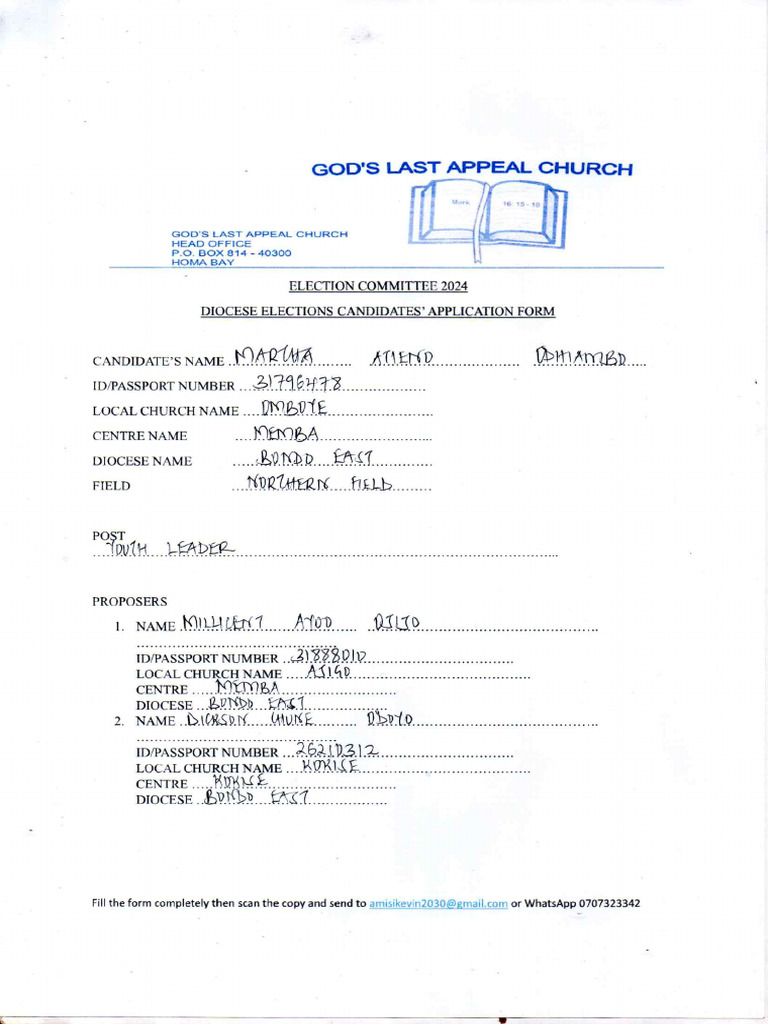 GOD'S LAST APPEAL CHURCH
Mark 16:15-18
GOD'S LAST APPEAL CHURCH
HEAD OFFICE
P.O. BOX 814 - 40300
HOMA BAY
ELECTION COMMITTEE 2024
DIOCESE ELECTIONS CANDIDATES' APPLICATION FORM
CANDIDATE'S NAME MARTHA ATIENO ODHIAMBO
ID/PASSPORT NUMBER 31796478
LOCAL CHURCH NAME OMBOYE
CENTRE NAME MEMBA
DIOCESE NAME BONDO EAST
FIELD NORTHERN FIELD
POST
YOUTH LEADER
PROPOSERS
1. NAME MILLICENT AYOO
ID/PASSPORT NUMBER 31888010
LOCAL CHURCH NAME AJIGO
CENTRE MEMBA
DIOCESE BONDO EAST
2. NAME DICKSON OBOYO
ID/PASSPORT NUMBER 26210312
LOCAL CHURCH NAME KOKISE
CENTRE KOKISE
DIOCESE BONDO EAST
Fill the form completely then scan the copy and send to amisikevin2030@gmail.com or WhatsApp 0707323342